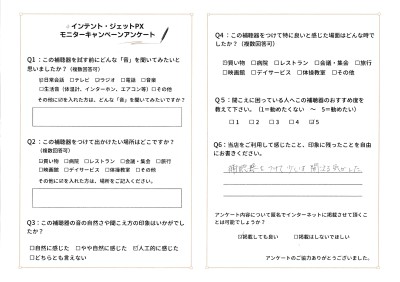 インテント・ジェットPX
モニターキャンペーンアンケート
Q1：この補聴器を試す前にどんな「音」を聞いてみたいと
思いましたか？（複数回答可）
☑日常会話　□テレビ　□ラジオ　□電話　□音楽
□生活音（体温計、インターホン、エアコン等）□その他
その他に☑を入れた方は、どんな「音」を聞いてみたいですか？
Q2：この補聴器をつけて出かけたい場所はどこですか？
（複数回答可）
☑買い物　□病院　□レストラン　□会議・集会　□旅行
□映画館　□デイサービス　□体操教室　□その他
その他に☑を入れた方は、場所をご記入ください。
Q3：この補聴器の音の自然さや聞こえ方の印象はいかがでし
たか？
□自然に感じた　□やや自然に感じた　☑人工的に感じた
□どちらとも言えない
Q4：この補聴器をつけて特に良いと感じた場面はどんな時で
したか？（複数回答可）
☑買い物　□病院　□レストラン　□会議・集会　□旅行
□映画館　□デイサービス　□体操教室　□その他
Q5：聞こえに困っている人へこの補聴器のおすすめ度を
教えて下さい。（1＝勧めたくない　～　5＝勧めたい）
□1　□2　□3　□4　□5
Q6：当店をご利用して感じたこと、印象に残ったことを自由
にお書きください。
補聴器をつけて少しは聞こえる気がした
アンケート内容について匿名でインターネットに掲載させて頂くこ
とは可能でしょうか？
☑掲載しても良い　□掲載はしないでほしい
アンケートのご協力ありがとうございました。